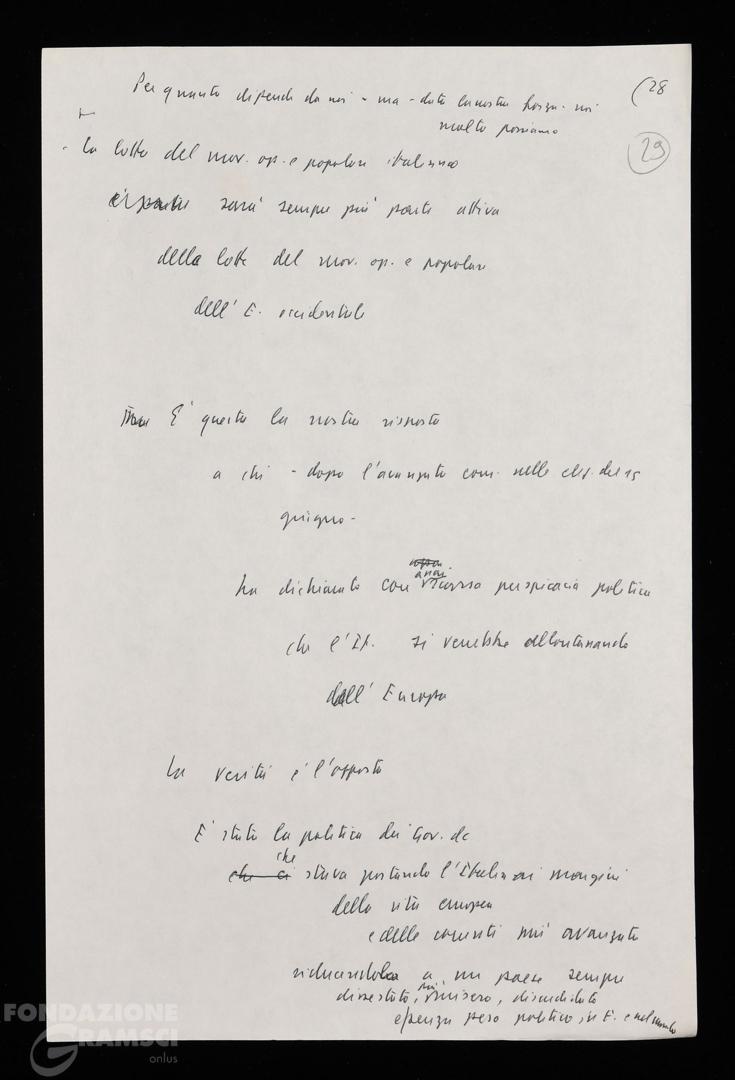 (28
29
Per quanto dipende da noi - ma - data la nostra forza - noi
molto possiamo
- la lotta del mov. op. e popolare italiano
sarà sempre più parte attiva
della lotta del mov. op. e popolare
dell' E. occidentale
E' questa la nostra risposta
a chi - dopo l'avanzata com. nelle elez. del 15
giugno -
assai
ha dichiarato con scarsa perspicacia politica
che l'It. si verrebbe allontanando
dall' Europa
La verità è l'opposto
E' stata la politica dei Gov. dc
che
che ci stava portando l'Italia ai margini
della vita europea
e delle correnti più avanzate
riducendola a un paese sempre
dissestato, più misero, discreditato
e senza peso politico in E. e nel mondo
FONDAZIONE
GRAMSCI
onlus